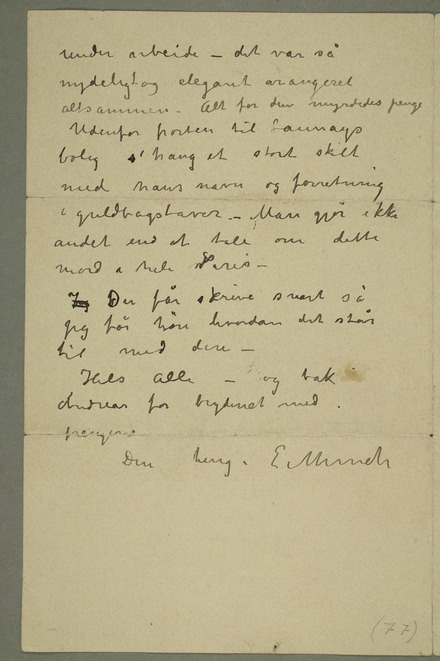 under arbeide – det var så
nydeligt og elegant arangeret
altsammen – Alt for den myrdedes penge
Udenfor porten til Launays
bolig hang et stort skilt
med hans navn og forretning
i guldbogstaver – Man gjør ikke
andet end at tale om dette
mord i hele Paris –
Du får skrive snart så
jeg får høre hvordan det står
til med dere –
Hils Alle – og tak
Andreas for bryderiet med
pengene
Din heng. E. Munch
(77)